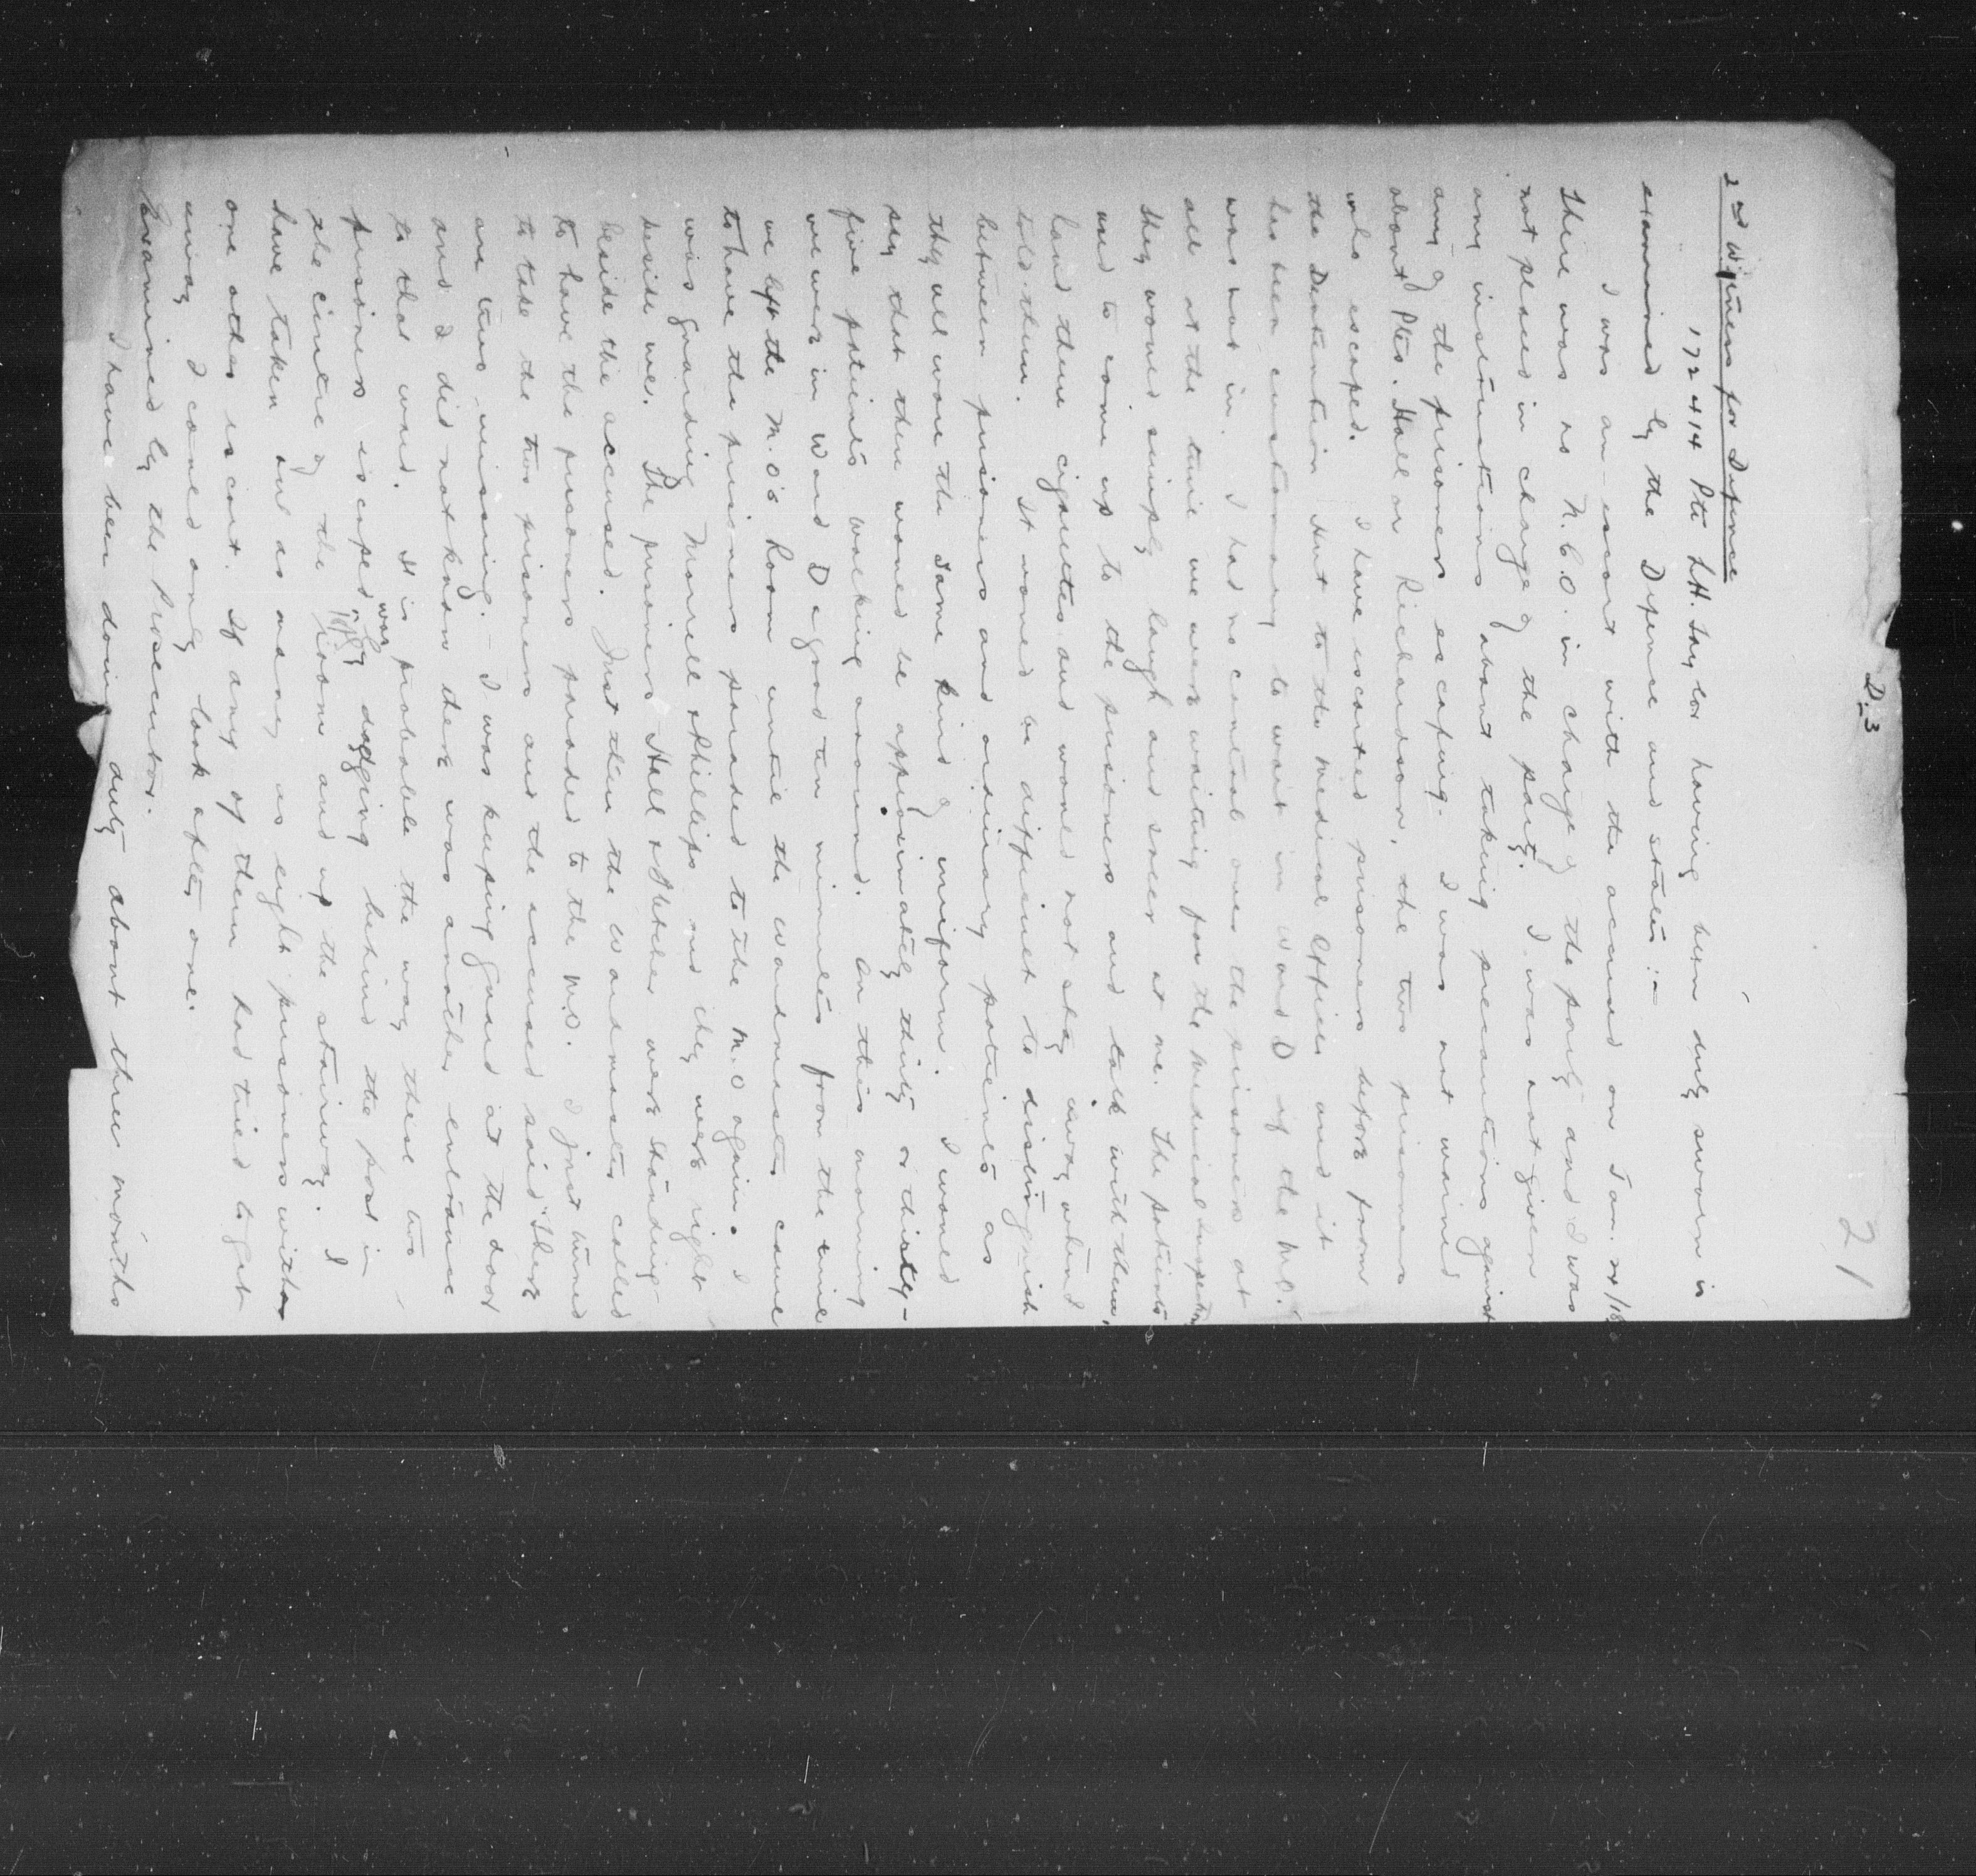 D.3
21
2nd Witness for Defence
172414 Pte L.H. Taylor having been duly sworn is
examined by the Defence and states:-
I was an escort with the accused on Jan.
There was no N.C.O. in charge of the party and I was
not placed in charge of the party. I was not given
any instructions about taking precautions against
any of the prisoners escaping. I was not warned
about Ptes. Hall or Richardson, the two prisoners
who escaped. I have escorted prisoners before from
the Detention Hut to the Medical Officer and it
has been customary to wait in Ward D if the M.O.
was not in. I had no control over the prisoners at
all at the time we were waiting for the Medical Inspection
they would simply laugh and sneer at me. The patients
used to come up to the prisoners and talk with them,
hand them cigarettes and would not stay away when I
told them. It would be difficult to distinguish
between prisoners and ordinary patients as
they all wore the same kind of uniform. I would
say that there would be approximately thirty or thirty-
five patients walking around. On this morning
we were in Ward D a good ten minutes from the time
we left the M.O's Room until the Wardmaster came
to have the prisoners paraded to the M.O again. I
was guarding Morrell & Phillips and they were right
beside me. The prisoners Hall & were standing
beside the accused. Just then the Wardmaster called
to have the prisoners paraded to the M.O. I just turned
to take the two prisoners and the accused said "There
are two missing. - I was keeping guard at the door
and I did not know there was another entrance
to that ward. It is probable the way these two
prisoners escaped was by dodging behind the post in
the centre of the room and up the stairway. I
have taken out as many as eight prisoners with
one other escort. If any of them had tried to get
away I could only look after one.
Examined by the Prosecutor.
I have been doing duty about three months